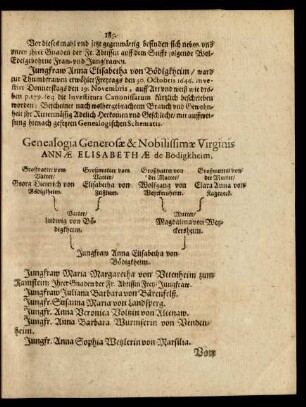 189.
Vor dieses mahl und jetzt gegenwärtig befinden sich neben uns
unter ihrer Gnaden der Fr. Abtissin auff dem Stifft folgende Wol-
Edelgebohrne Fraw- und Jungfrawen.
Jungfraw Anna Elisabetha von Bödigkheim/ ward
zur Thumbfrawen erwöhlet Freytags den 30. Octobris 1696. inve-
stirt Donnerstags den 19. Novembris, auff Art und weiß wie dro-
ben p. 179. seq. die Investitura Canonissarum kürtzlich beschrieben
worden: Bescheinte nach wolhergebrachtem Brauch und Gewohn-
heit ihr Rittermässig Adlich Herkomen und Geschlecht/ mit auffwei-
sung hienach gesetzten Genealogischen Schematis.
Genealogia Generosæ & Nobilissimæ Virginis
ANNÆ ELISABETHÆ de Bodigkheim.
Großvatter vom Vatter/ Großmutter vom Vatter/ Großvatter von der Mutter/ Großmutter von der Mutter/
Georg Dieterich von Bödigkheim. Elisabetha von Wolffgang von Weytersheim. Clara Anna von
Vatter/ Mutter/
Ludwig von Bödigkheim. Magdalena von Weytersheim.
Jungfraw Anna Elisabetha von
Bödigkheim.
Jungfraw Maria Margaretha von Vetenheim zum
Ramstein Ihrer Gnaden der Fr. Abtissin Frey-Jungfraw.
Jungfraw Juliana Barbara von Bärenfels.
Jungfr. Susanna Maria von Landsperg.
Jungfr. Anna Veronica Voltzin von Altenaw.
Jungfr. Anna Barbara Wurmserin von Venden-
heim.
Jungfr. Anna Sophia Weylerin von Marsilia.
Von